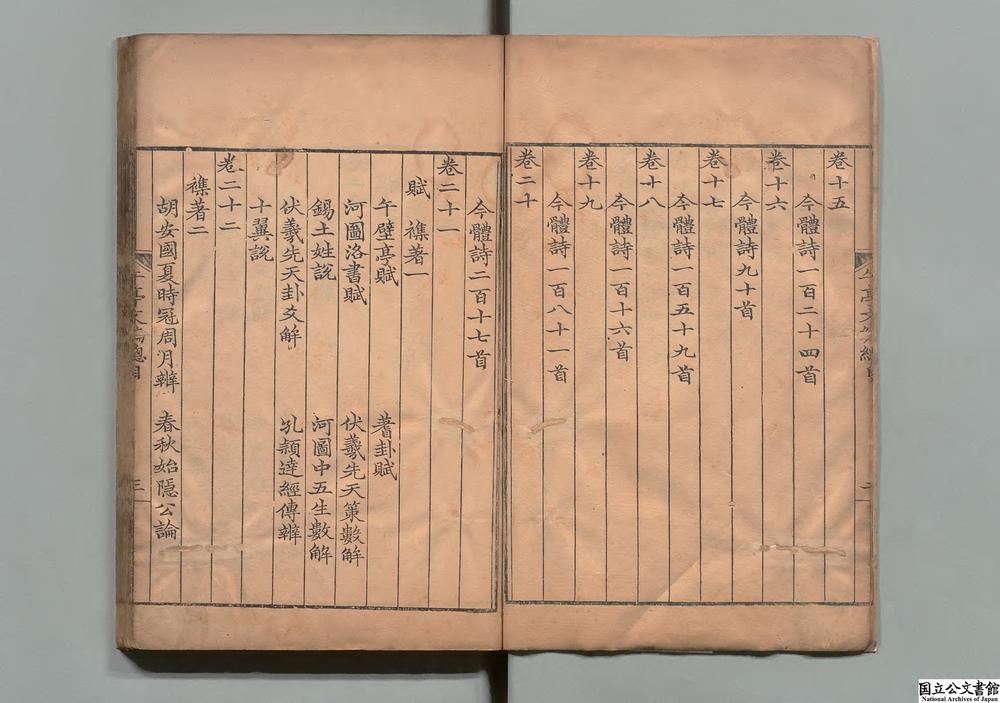 卷十五
今體詩一百二十四首
卷十六
今體詩九十首
卷十七
今體詩一百五十九首
卷十八
今體詩一百十六首
卷十九
今體詩一百八十一首
卷二十
今體詩二百十七首
卷二十一
賦 襍著一
午壁亭賦 蓍卦賦
河圖洛書賦 伏羲先天策數解
錫土姓說 河圖中五生數解
伏羲先天卦爻解 孔穎達經傳辨
十翼說
卷二十二
襍著二
胡安國夏時冠周月辨 春秋始隱公論
三
国立公文書館
National Archives of Japan